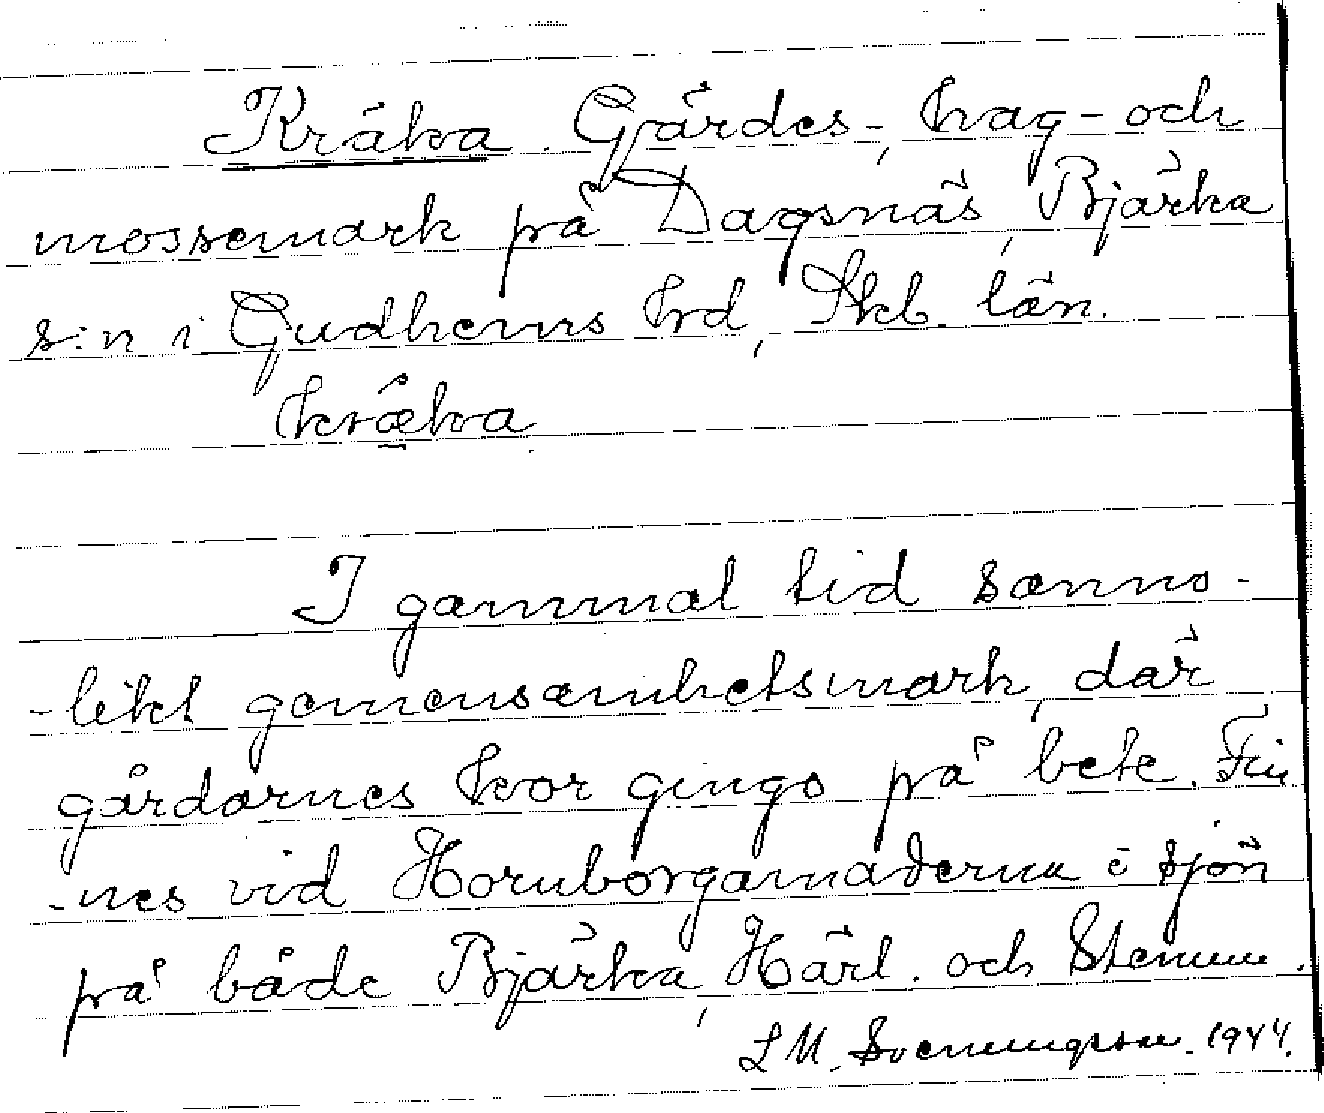 Kräka. Gärdes-, hag- och
mossemark på Dagsnäs, Bjärka
s:n i Gudhems hrd, Skb. län.
kræ̂ka
I gammal tid sanno-
-likt gemensamhetsmark, där
gårdarnes kor gingo på bete. Fin
-nes vid Hornborgamaderna i sjön
på både Bjärka, Härl. och Stenum.
L M. Svenungsson. 1944.